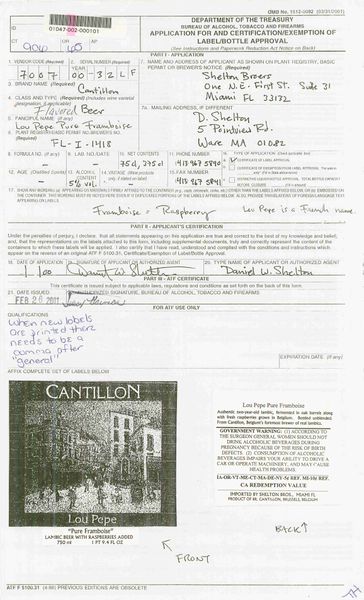 OMB No. 1512-0092 (03/31/2001)
01047-002-000101
DEPARTMENT OF THE TREASURY
BUREAU OF ALCOHOL, TOBACCO AND FIREARMS
APPLICATION FOR AND CERTIFICATION/EXEMPTION OF
LABEL/BOTTLE APPROVAL
(See Instructions and Paperwork Reduction Act Notice on Back)
CT
1. VENDOR CODE (Required)
2. SERIAL NUMBER (Required)
YEAR
7007 00-32LF
3. BRAND NAME (Required)
Cantillon
4. CLASS AND TYPE (Required)
Flavored Beer
5. FANCIFUL NAME (If any)
Lou Pepe Pure Framboise
FL-I-1418
7. NAME AND ADDRESS OF APPLICANT AS SHOWN ON PLANT REGISTRY, BASIC
PERMIT OR BREWER'S NOTICE (Required)
Shelton Bros
One N.E. First St. Suite 31
Miami FL 33132
7a. MAILING ADDRESS, IF DIFFERENT
D. Shelton
5 Pointview Rd.
Ware MA 01082
8. FORMULA NO. (If any)
9. LAB. NO./DATE
10. NET CONTENTS
75cl, 37.5cl
11. PHONE NUMBER
413 967 5890
12. AGE (Distilled Spirits)
13. ALCOHOL CONTENT
5% vol.
15. FAX NUMBER
413 967 5841
Framboise = Raspberry
Lou Pepe is a Family name.
PART II - APPLICANT'S CERTIFICATION
Under the penalties of perjury, I declare: that all statements appearing on this application are true and correct to the best of my knowledge and belief;
and, that the representations on the labels attached to this form, including supplemental documents, truly and correctly represent the content of the
containers to which these labels will be applied. I also certify that I have read, understood and complied with the conditions and instructions which
appear on the reverse of an original ATF F 5100.31, Certificate/Exemption of Label/Bottle Approval.
18. DATE OF APPLICATION
19. SIGNATURE OF APPLICANT OR AUTHORIZED AGENT
20. TYPE NAME OF APPLICANT OR AUTHORIZED AGENT
Daniel W. Shelton
PART III - ATF CERTIFICATE
This certificate is issued subject to applicable laws, regulations and conditions as set forth on the back of this form.
21. DATE ISSUED
FEB 26 2001
22. AUTHORIZED SIGNATURE, BUREAU OF ALCOHOL, TOBACCO AND FIREARMS
FOR ATF USE ONLY
QUALIFICATIONS
When new labels
are printed there
needs to be a
comma after
"general"
EXPIRATION DATE (If any)
AFFIX COMPLETE SET OF LABELS BELOW
CANTILLON
Lou Pepe
"Pure Framboise"
LAMBIC BEER WITH RASPBERRIES ADDED
750 ml 1 PT 9.4 FL OZ
FRONT
Lou Pepe Pure Framboise
Authentic two-year-old lambic, fermented in oak barrels along
with fresh raspberries grown in Belgium. Bottled unblended.
From Cantillon, Belgium's foremost brewer of real lambics.
GOVERNMENT WARNING: (1) ACCORDING TO
THE SURGEON GENERAL WOMEN SHOULD NOT
DRINK ALCOHOLIC BEVERAGES DURING
PREGNANCY BECAUSE OF THE RISK OF BIRTH
DEFECTS (2) CONSUMPTION OF ALCOHOLIC
BEVERAGES IMPAIRS YOUR ABILITY TO DRIVE A
CAR OR OPERATE MACHINERY, AND MAY CAUSE
HEALTH PROBLEMS
IA-OR-VT-ME-CT-MA-DE-NY-5¢ REF. MI-10¢ REF.
CA REDEMPTION VALUE
IMPORTED BY SHELTON BROS., MIAMI FL
PRODUCT OF BR. CANTILLON, BRUSSELS, BELGIUM
BACK
ATF F 5100.31 (4-98) PREVIOUS EDITIONS ARE OBSOLETE